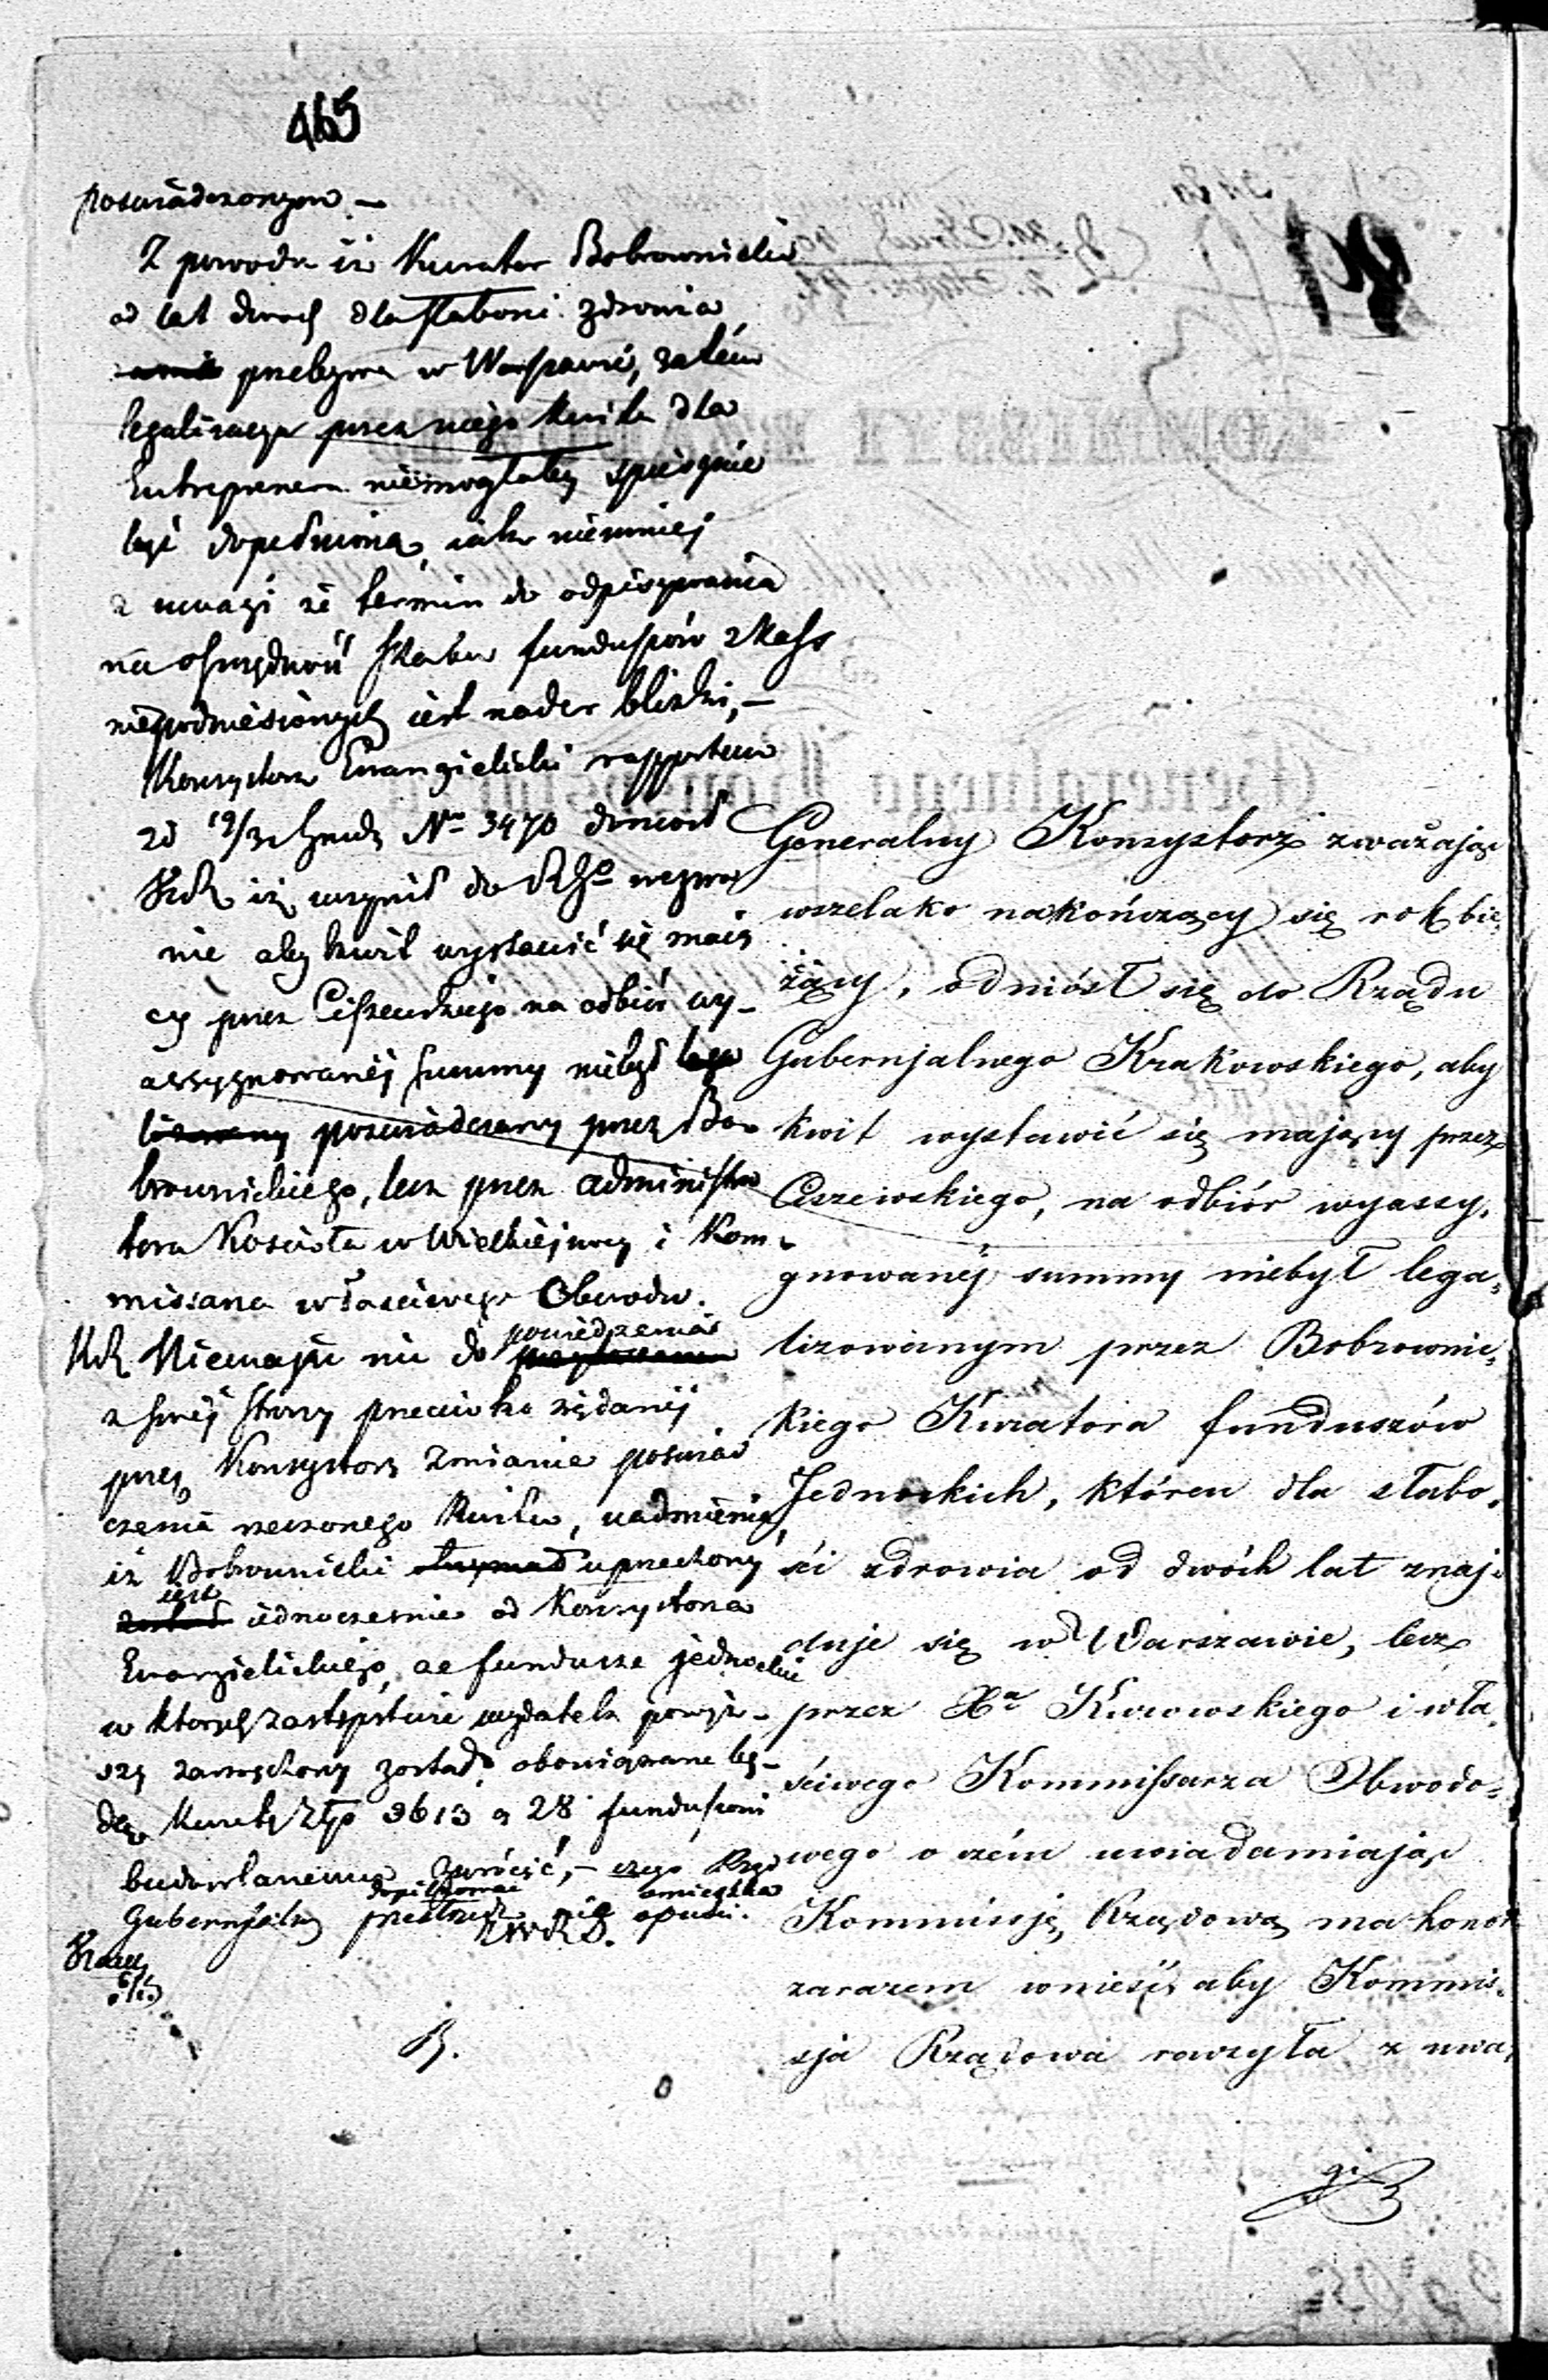 465
poswiadczonym. —
Z powodu iż Kurator Bobrownicki
od lat dwoch dla słabości zdrowia
przebywa w Warszawie, zatém
legalizacya przez niego kwitu dla
Entreprenera niemogłaby spiesznie
być dopełnioną, iako niemniej
z uwagi że termin do odpisywania
na oszczędność Skarbu funduszów z Kass
niepodniesionych iest nader blizki, —
Konsystorz Ewangielicki rapportem
zd 19/31 Grud. No 3470 doniosł
iż uczynił do RGo wezwa
nie aby kwit wystawić się maią
cy przez Ciszewskiego na odbiór wy-
assygnowanéj summy niebył
poswiadczany przez Bo-
brownickiego, lecz przez administra
tora Kościoła w Wielkiejwsy i Kom-
missarza właściwego Obwodu.
Niemając nic do powiedzenia
z swéj strony przeciwko żądanéj
przez Konsystorz zmianie poswiad
czenia rzeczonego kwitu, nadmienia,
iż Bobrownicki uprzedzony
iest iednocześnie od Konsystorza
Ewangielickiego, że fundusze jednockie
w których zastępstwie wydatek powyż-
szy zarządzony został, obowiązane bę-
dą Kwotę Złp 3613 g 28 funduszowi
budowlanemu zwrócić, — czego Rząd
Gubernjalny dopilnować nie omieszka
B.
Generalny Konsystorz zważając
wszelako nakończący się rok bie,
żący, odniósł się do Rządu
Gubernjalnego Krakowskiego, aby
kwit wystawić się mający przez
Ciszewskiego, na odbiór wyassy,
gnowanéj summy niebył lega,
lizowanym przez Bobrownic,
kiego Kuratora funduszów
Jednockich, któren dla słabo,
ści zdrowia od dwóch lat znaj,
duje się w Warszawie, lecz
przez Xa Kurowskiego i wła,
ściwego Kommissarza Obwodo,
wego o czém uwiadamiając
Kommissję Rządową ma honor
zarazem wnieść, aby Kommis,
sja Rządowa raczyła z uwa,
gi